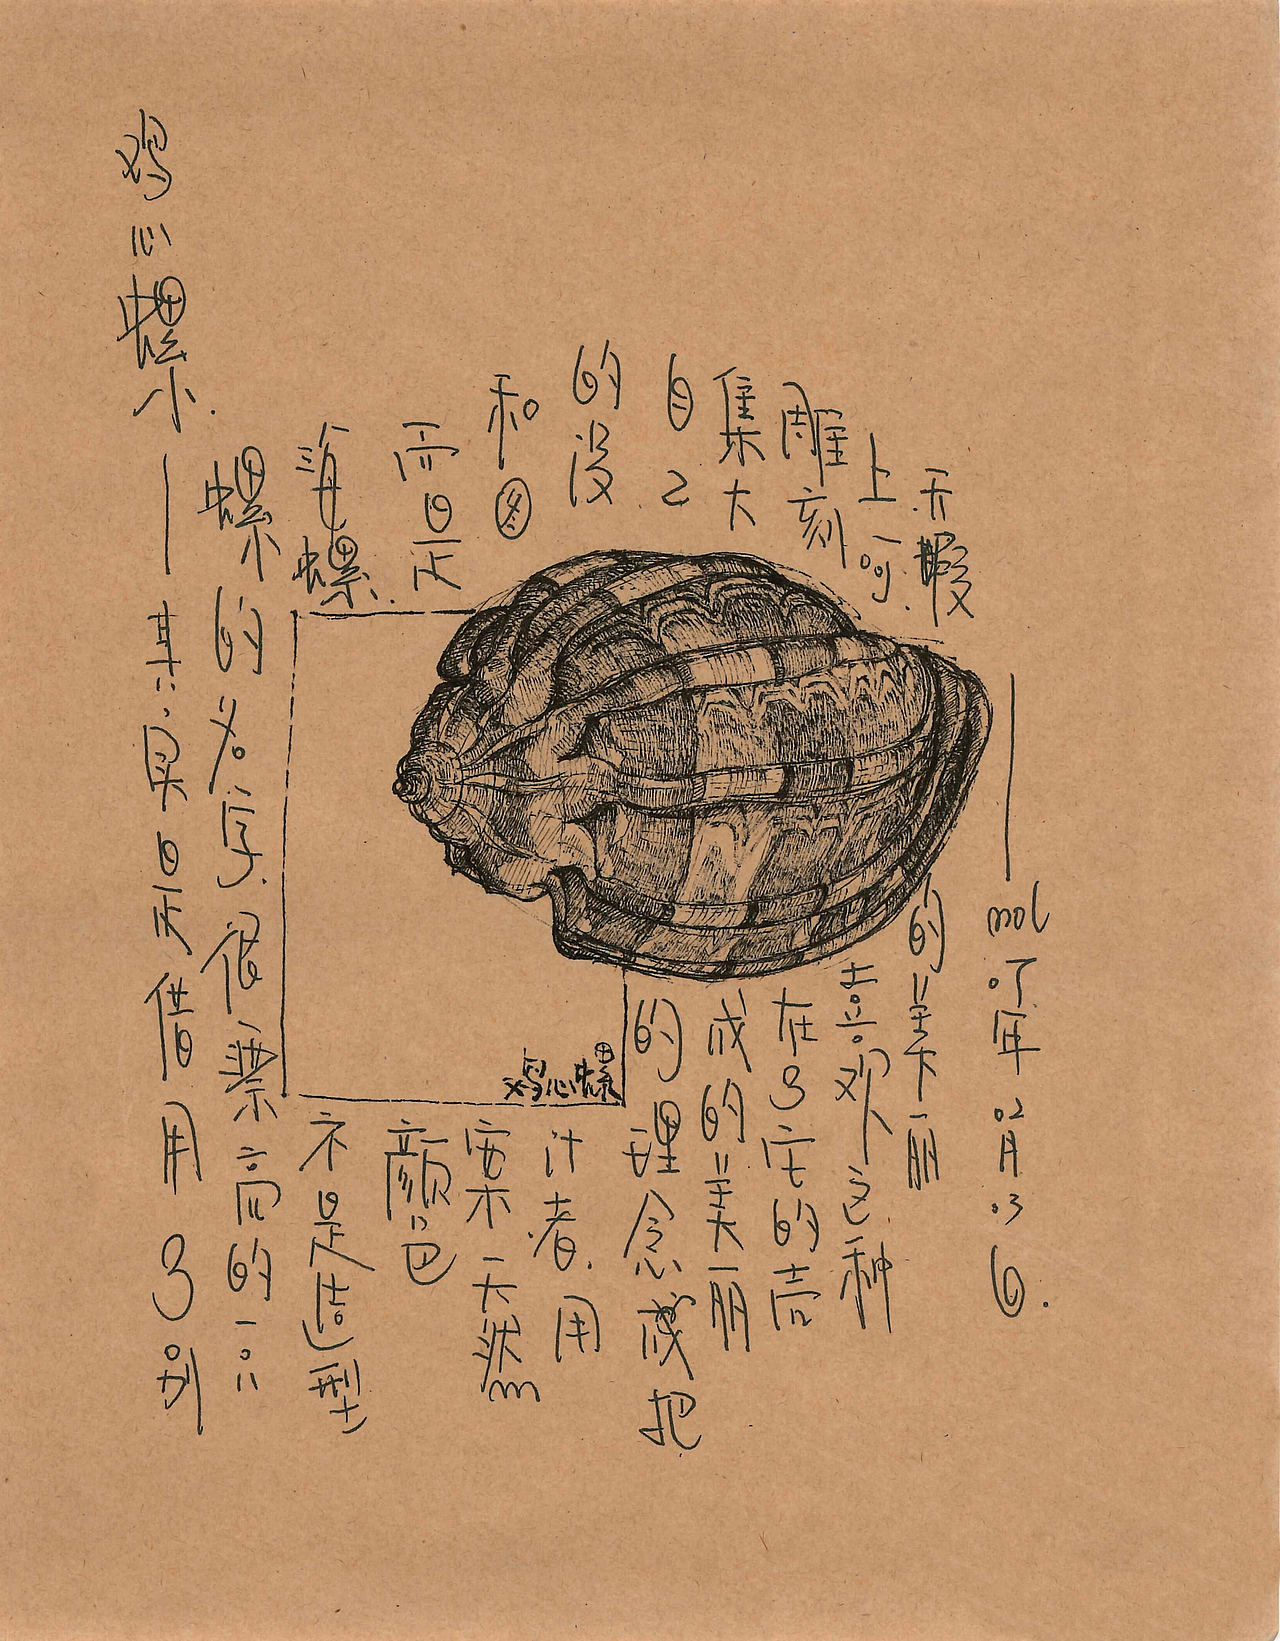 鸡心螺——其实是借用了别
螺的名字.很漂亮的一只
海螺.不是造型
而是颜色
和图案天然
的设计者.用
自己的理念把
集大成的美丽
雕刻在了它的壳
上.呵.喜欢这种
无暇的美丽
——mol 07年.02月.03日.
鸡心螺